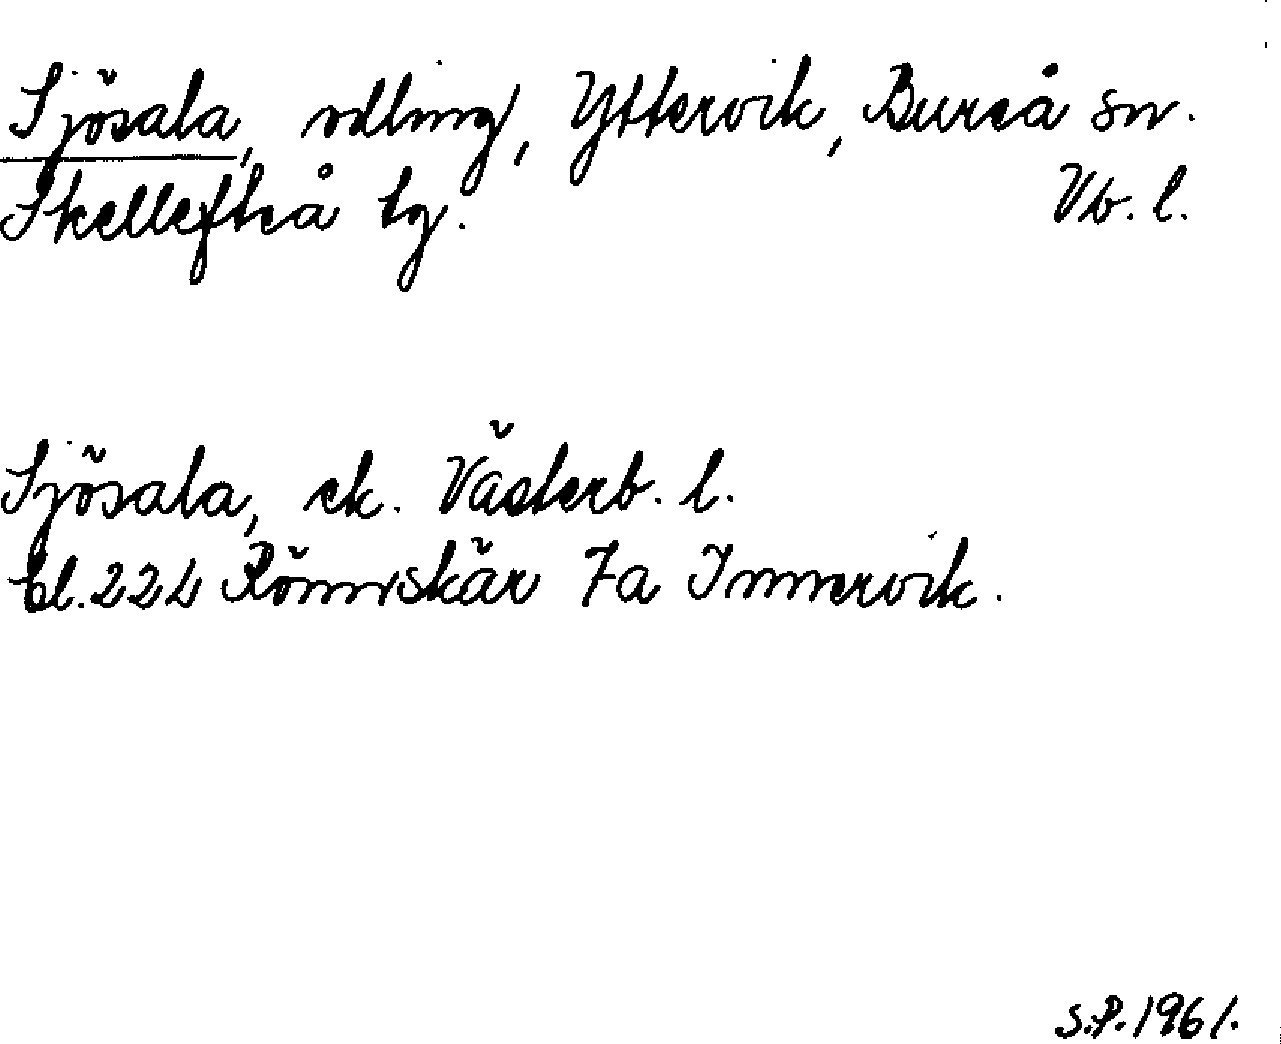 Sjösala, odling, Yttervik, Bureå sn.
Skellefteå tg. Vb. l.
Sjösala, ek. Västerb. l.
bl. 224 Rönnskär 7a Innervik.
S.P. 1961.